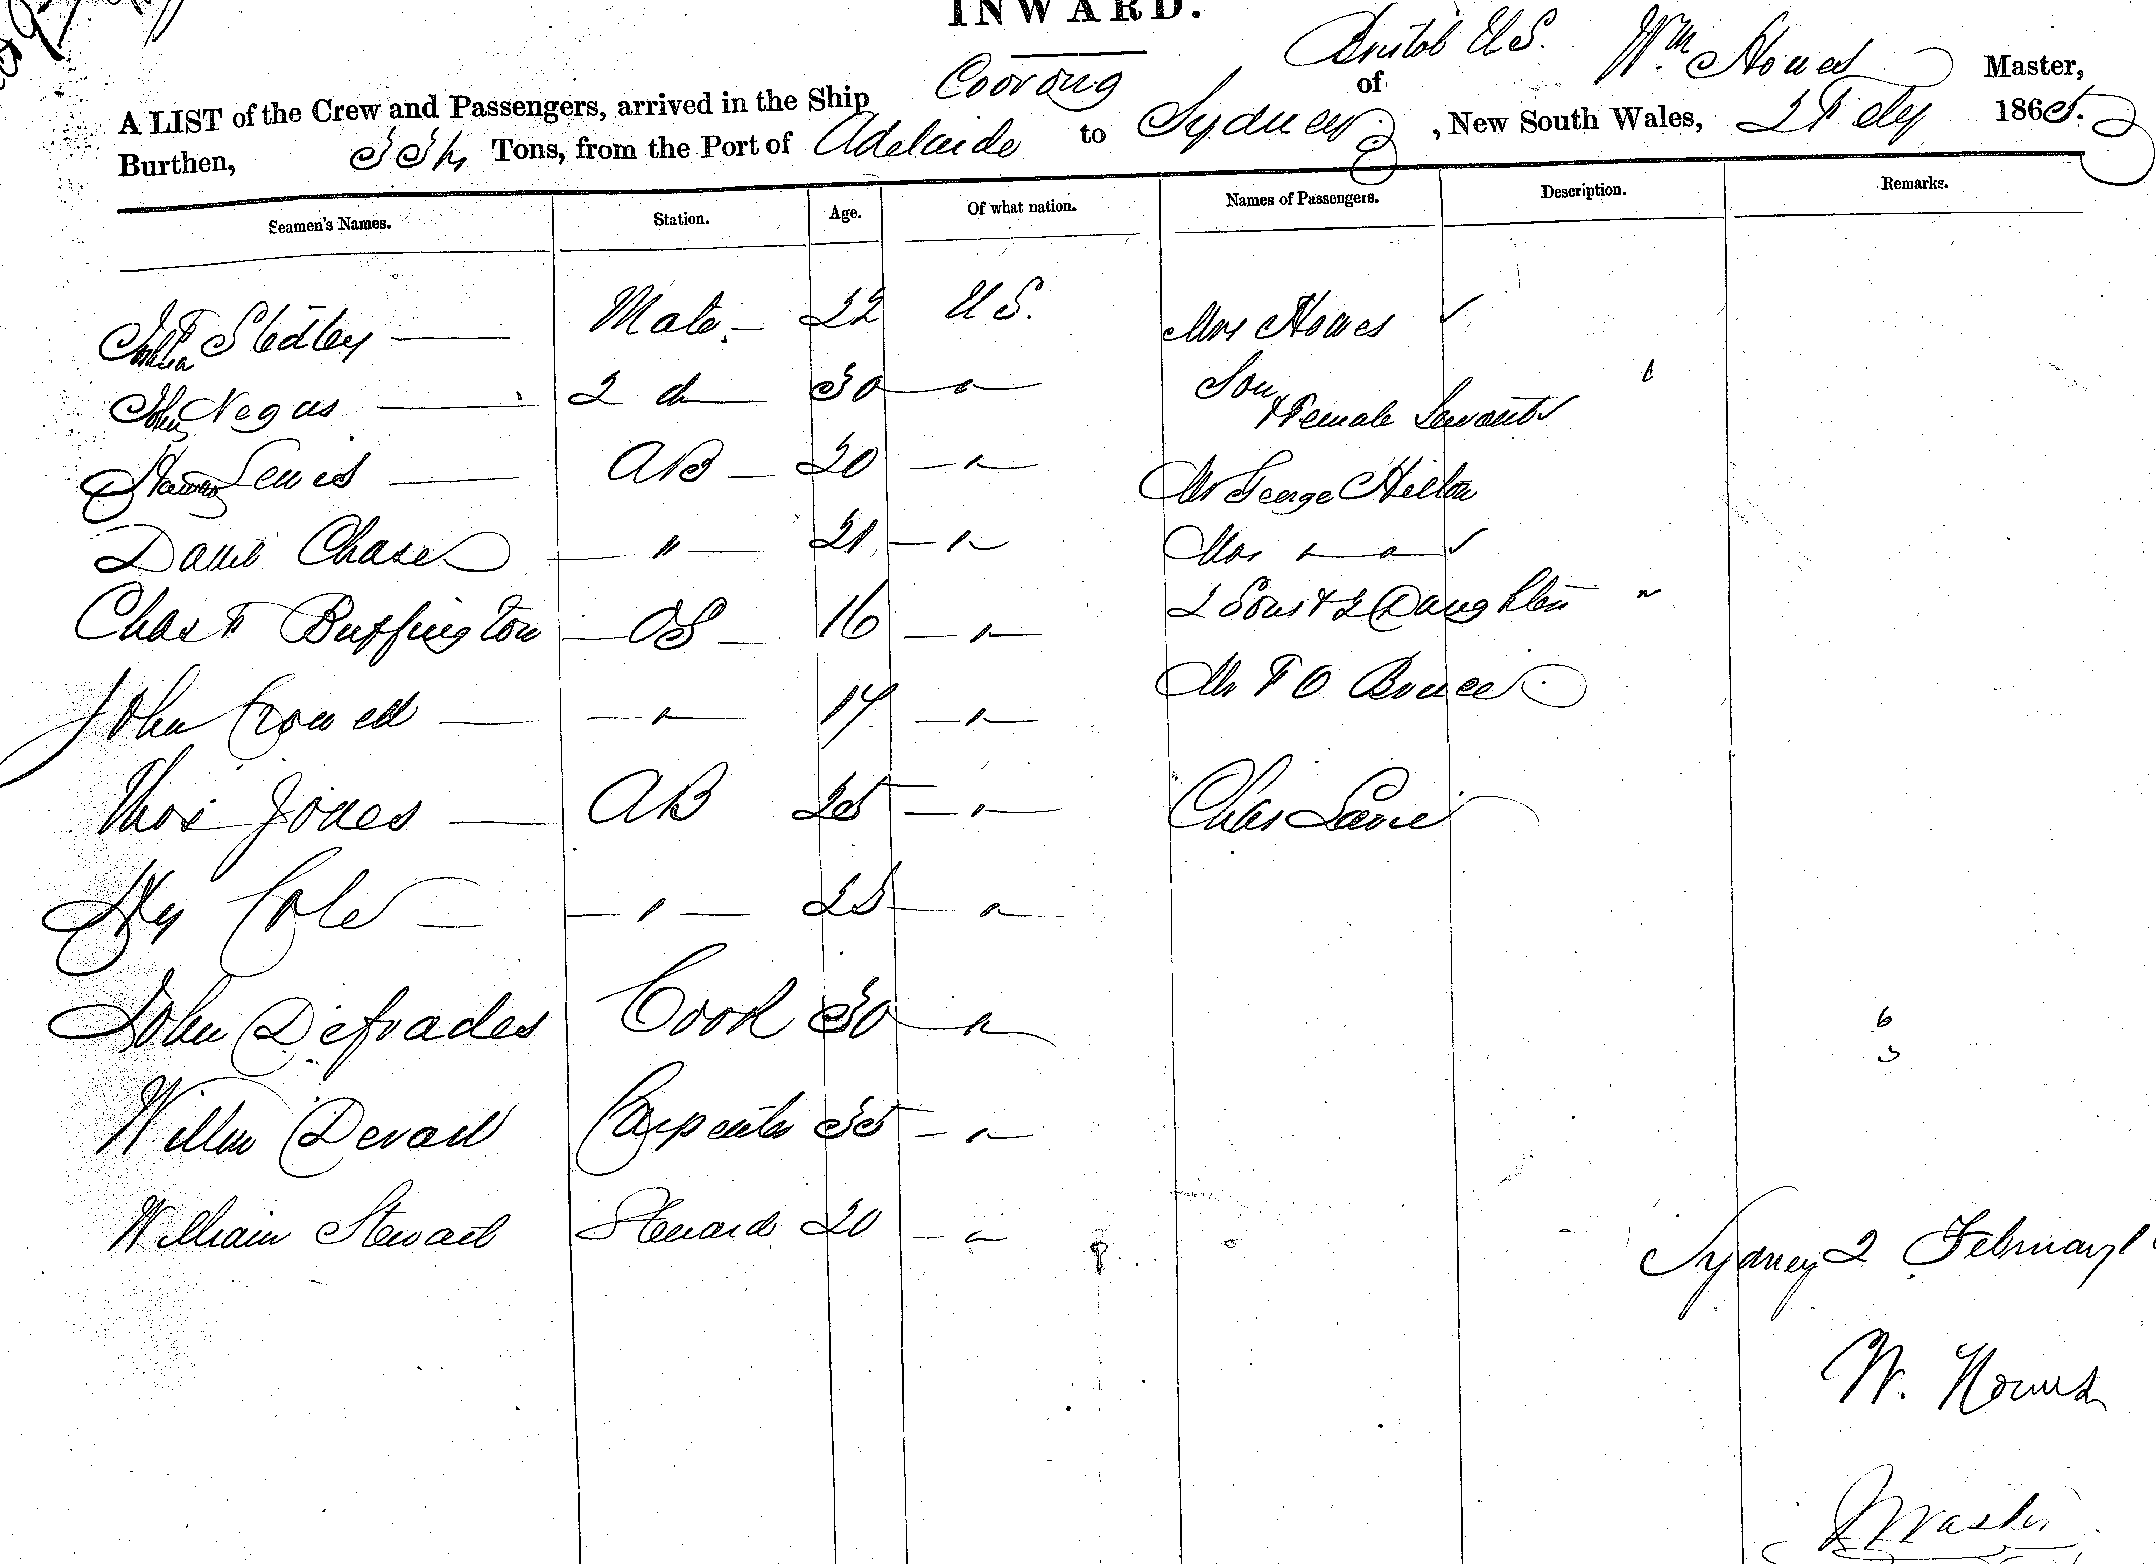 INWARD.
A LIST of the Crew and Passengers, arrived in the Ship Coorong of Bristol U.S. Wm Howes Master,
Burthen, Tons, from the Port of Adelaide to Sydney, New South Wales, 2 Feby 1865.
Seamen's Names. Station. Age. Of what nation. Names of Passengers. Description. Remarks.
Sledley Mate 22 U S. Mrs Howes ✓
John Negus 2 d 30 " Son
& Female Servant ✓
Lewis AB 20 " Mr George Hilton
David Chase " 21 " Mrs " " ✓
Chas F Buffington OS 16 " 2 Sons & 2 Daughters "
John Crowell " 17 " Mr F O Bruce
Thos Jones AB 25 " Chas
Hy Cole " 25 "
John Defrades Cook 30 "
6
3
Willm Devail Carpenter 35 "
William Stewart Steward 20 "
Sydney 2 February
W. Howes
Master